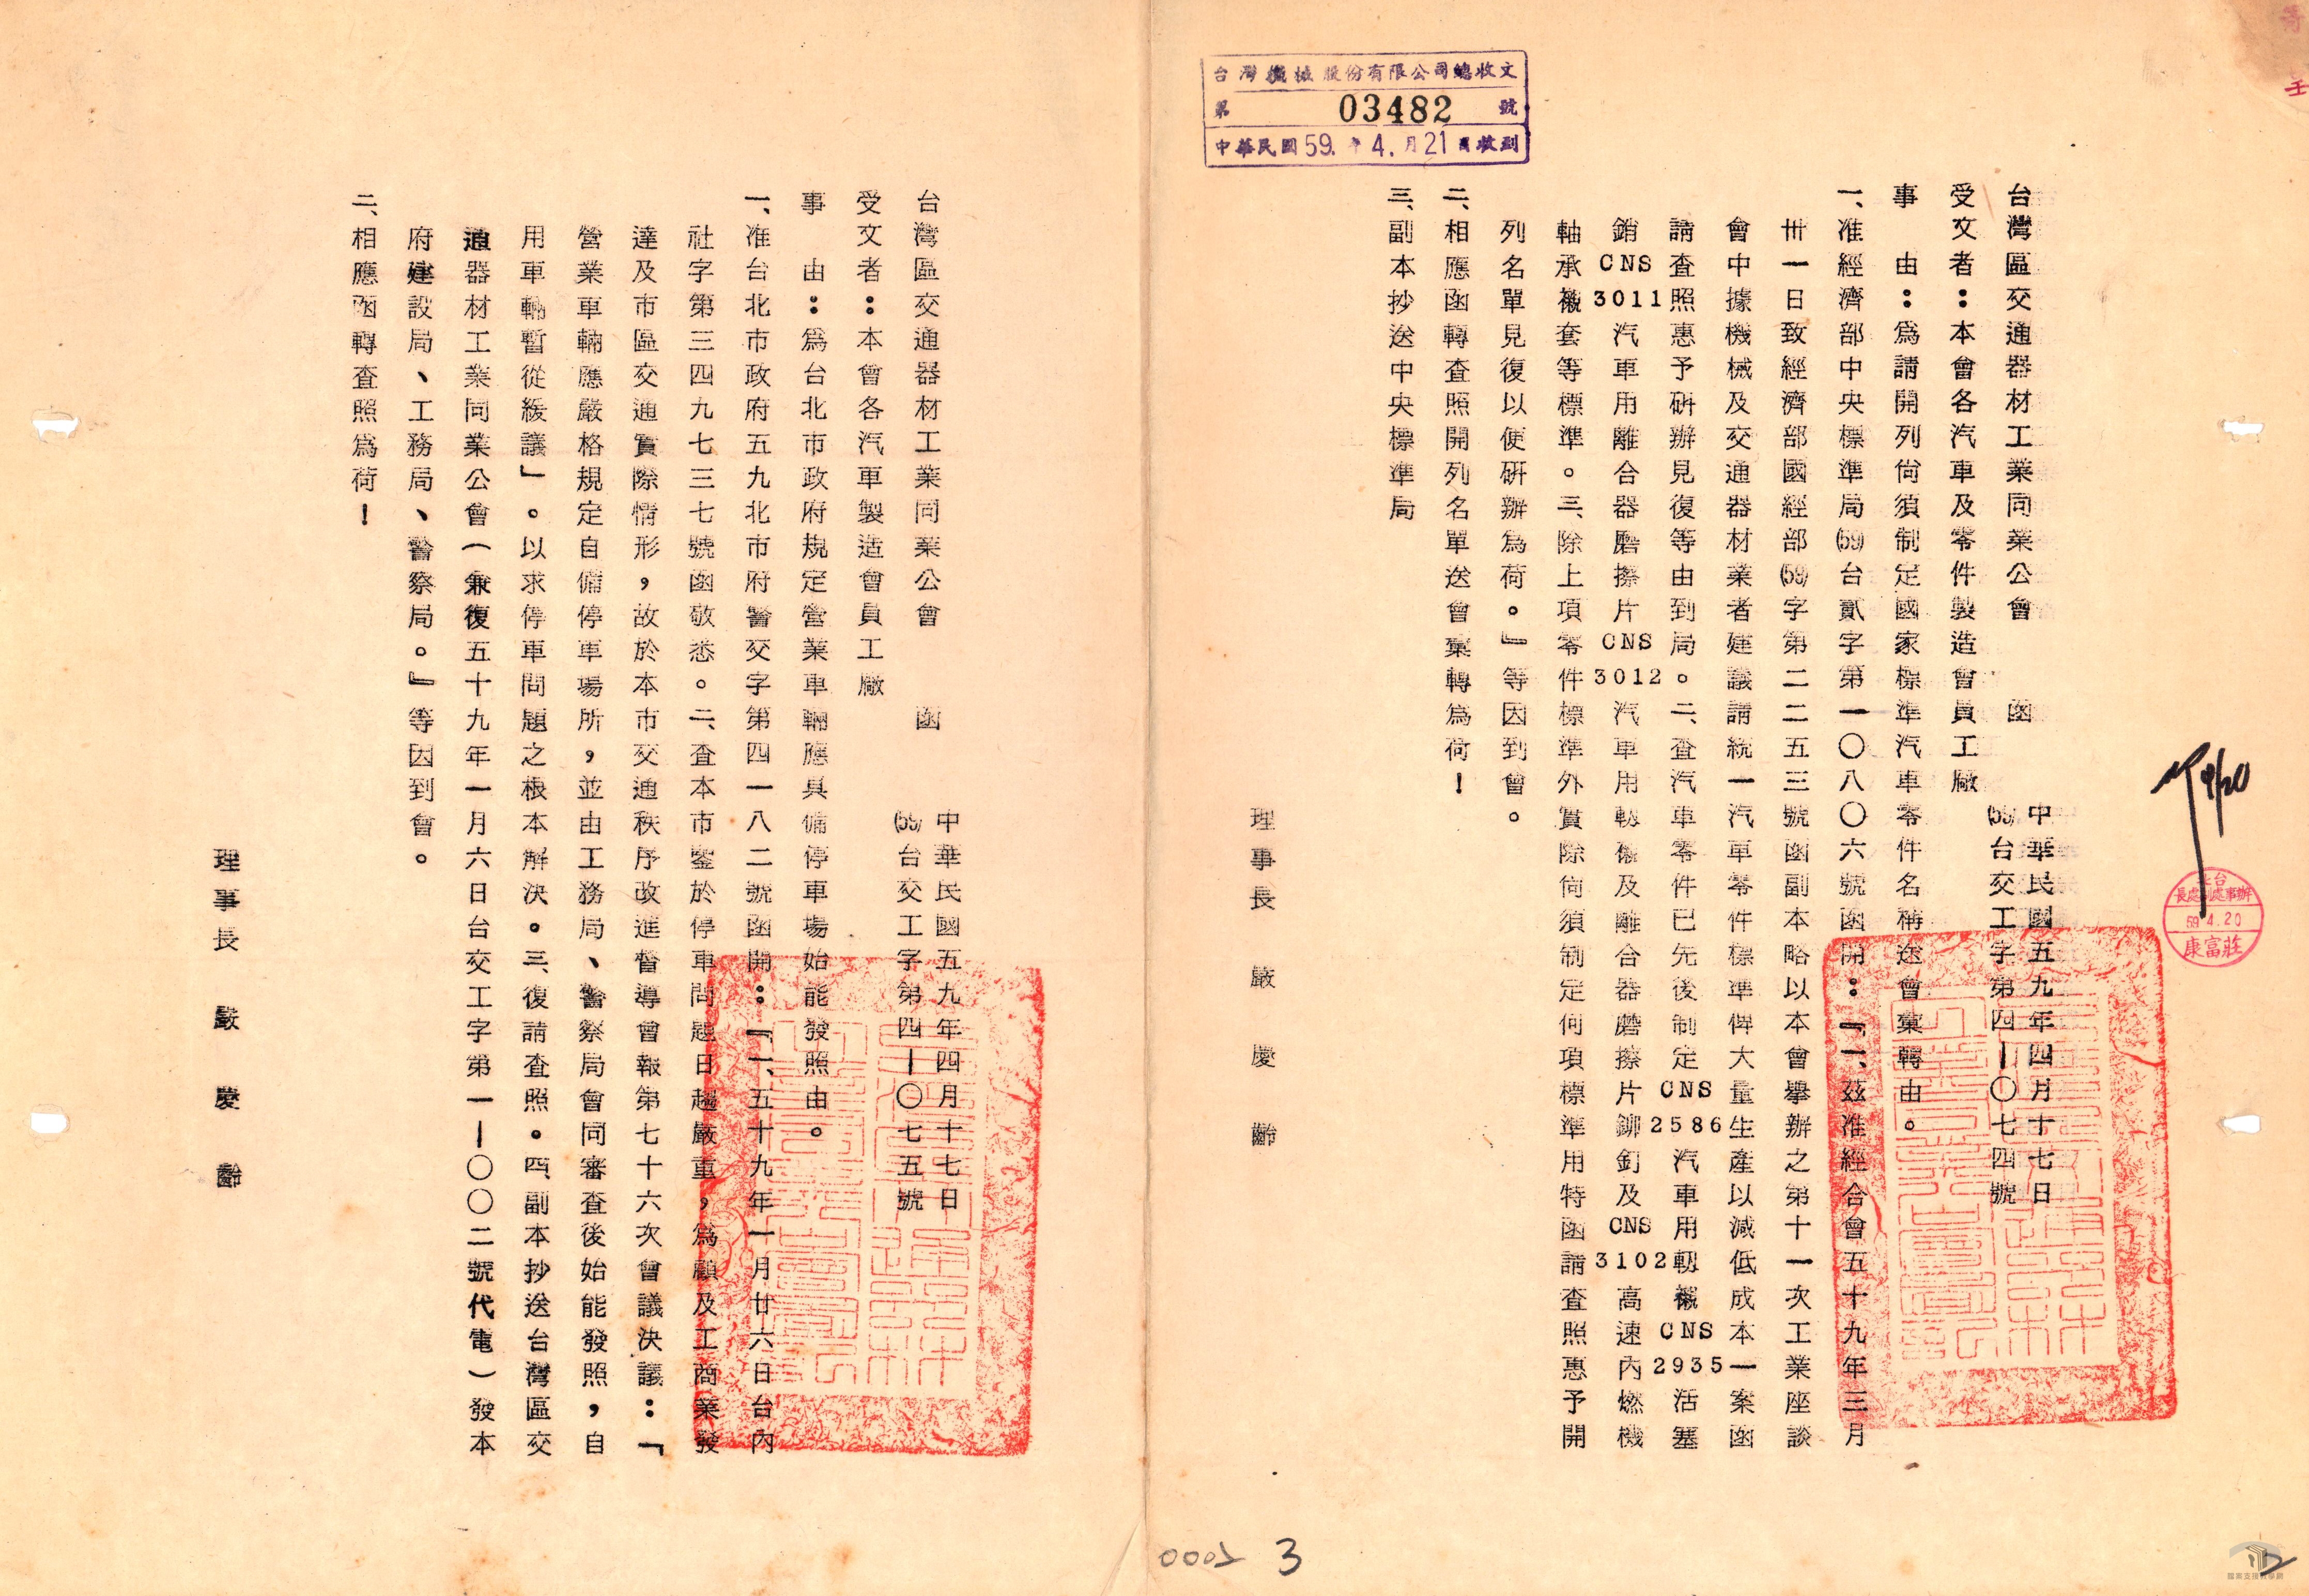 台灣機械股份有限公司總收文
第 03482 號
中華民國59.年4.月21日收到
台灣區交通器材工業同業公會 函
中華民國五九年四月十七日
(59)台交工字第四—〇七四號
受文者：本會各汽車及零件製造會員工廠
事 由：爲請開列尙須制定國家標準汽車零件名稱送會彙轉由。
一、准經濟部中央標準局(59)台貳字第一〇八〇六號函開：『一、茲准經合會五十九年三月
卅一日致經濟部國經部(59)字第二二五三號函副本略以本會擧辦之第十一次工業座談
會中據機械及交通器材業者建議請統一汽車零件標準俾大量生產以減低成本一案函
請查照惠予硏辦見復等由到局。二、查汽車零件已先後制定CNS 2586汽車用軔襯CNS 2935活塞
銷CNS 3011汽車用離合器磨擦片CNS 3012汽車用軔襯及離合器磨擦片鉚釘及CNS 3102高速內燃機
軸承襯套等標準。三、除上項零件標準外實際尙須制定何項標準用特函請查照惠予開
列名單見復以便硏辦爲荷。』等因到會。
二、相應函轉查照開列名單送會彙轉爲荷！
三、副本抄送中央標準局
理事長 嚴慶齡
59.4.20
康富莊
4/20
台灣區交通器材工業同業公會 函
中華民國五九年四月十七日
(59)台交工字第四—〇七五號
受文者：本會各汽車製造會員工廠
事 由：爲台北市政府規定營業車輛應具備停車場始能發照由。
一、准台北市政府五九北市府警交字第四一八二號函開：『一、五十九年一月廿六日台內
社字第三四九七三七號函敬悉。二、查本市鑒於停車問題日趨嚴重，爲顧及工商業發
達及市區交通實際情形，故於本市交通秩序改進督導會報第七十六次會議決議：「
營業車輛應嚴格規定自備停車場所，並由工務局、警察局會同審查後始能發照，自
用車輛暫從緩議」。以求停車問題之根本解決。三、復請查照。四、副本抄送台灣區交
通器材工業同業公會（兼復五十九年一月六日台交工字第一—〇〇二號代電）發本
府建設局、工務局、警察局。』等因到會。
二、相應函轉查照爲荷！
理事長 嚴慶齡
3
檔案支援教學網